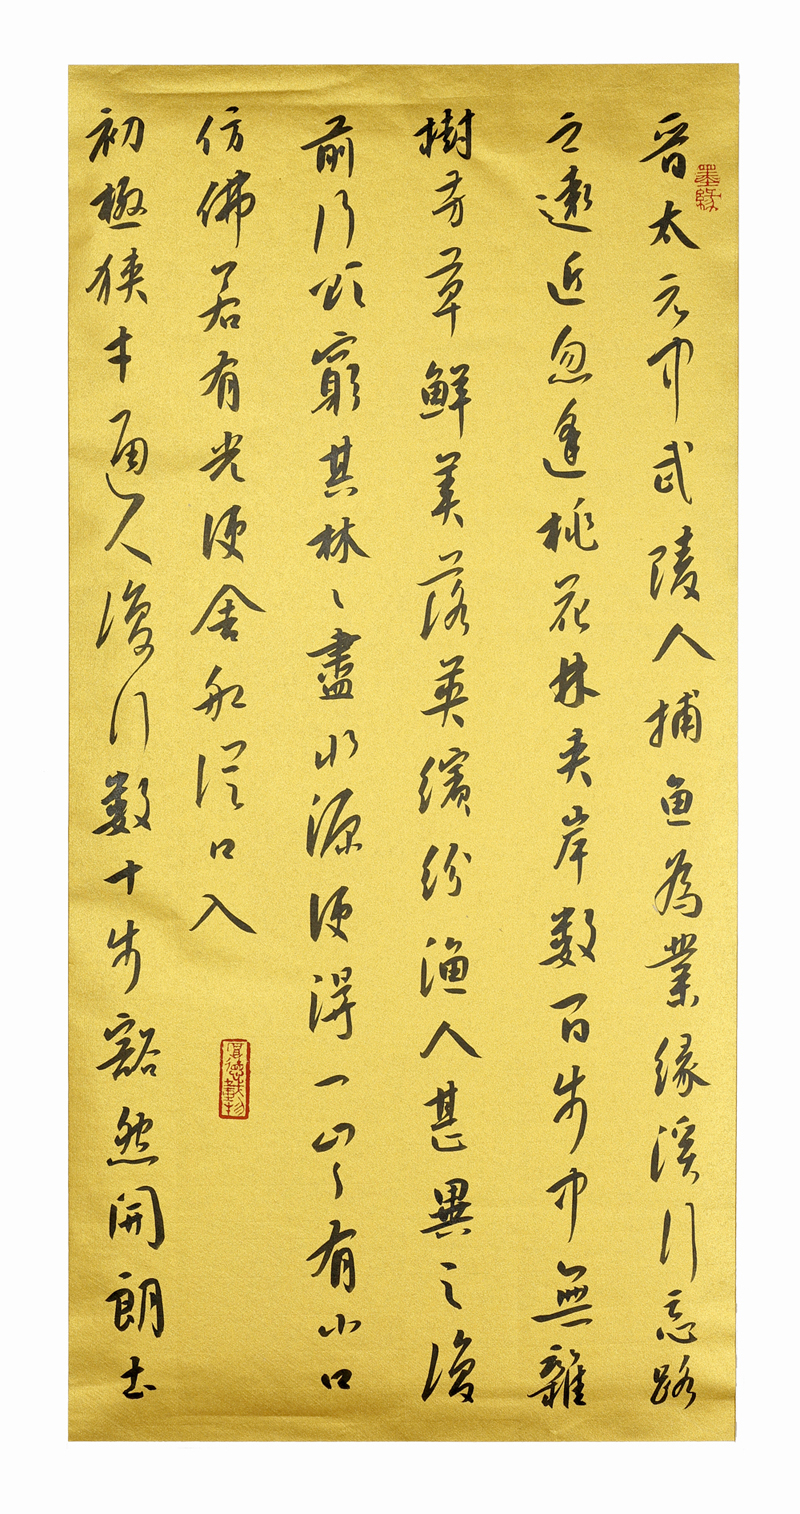 墨緣
晉太元中武陵人捕魚為業緣溪行忘路
之遠近忽逢桃花林夾岸数百步中無雜
樹芳草鮮美落英繽紛漁人甚異之復
前行欲窮其林〻盡水源便得一山〻有小口
仿佛若有光便舍船從口入
厚德載物
初極狹才通人復行数十步豁然開朗土